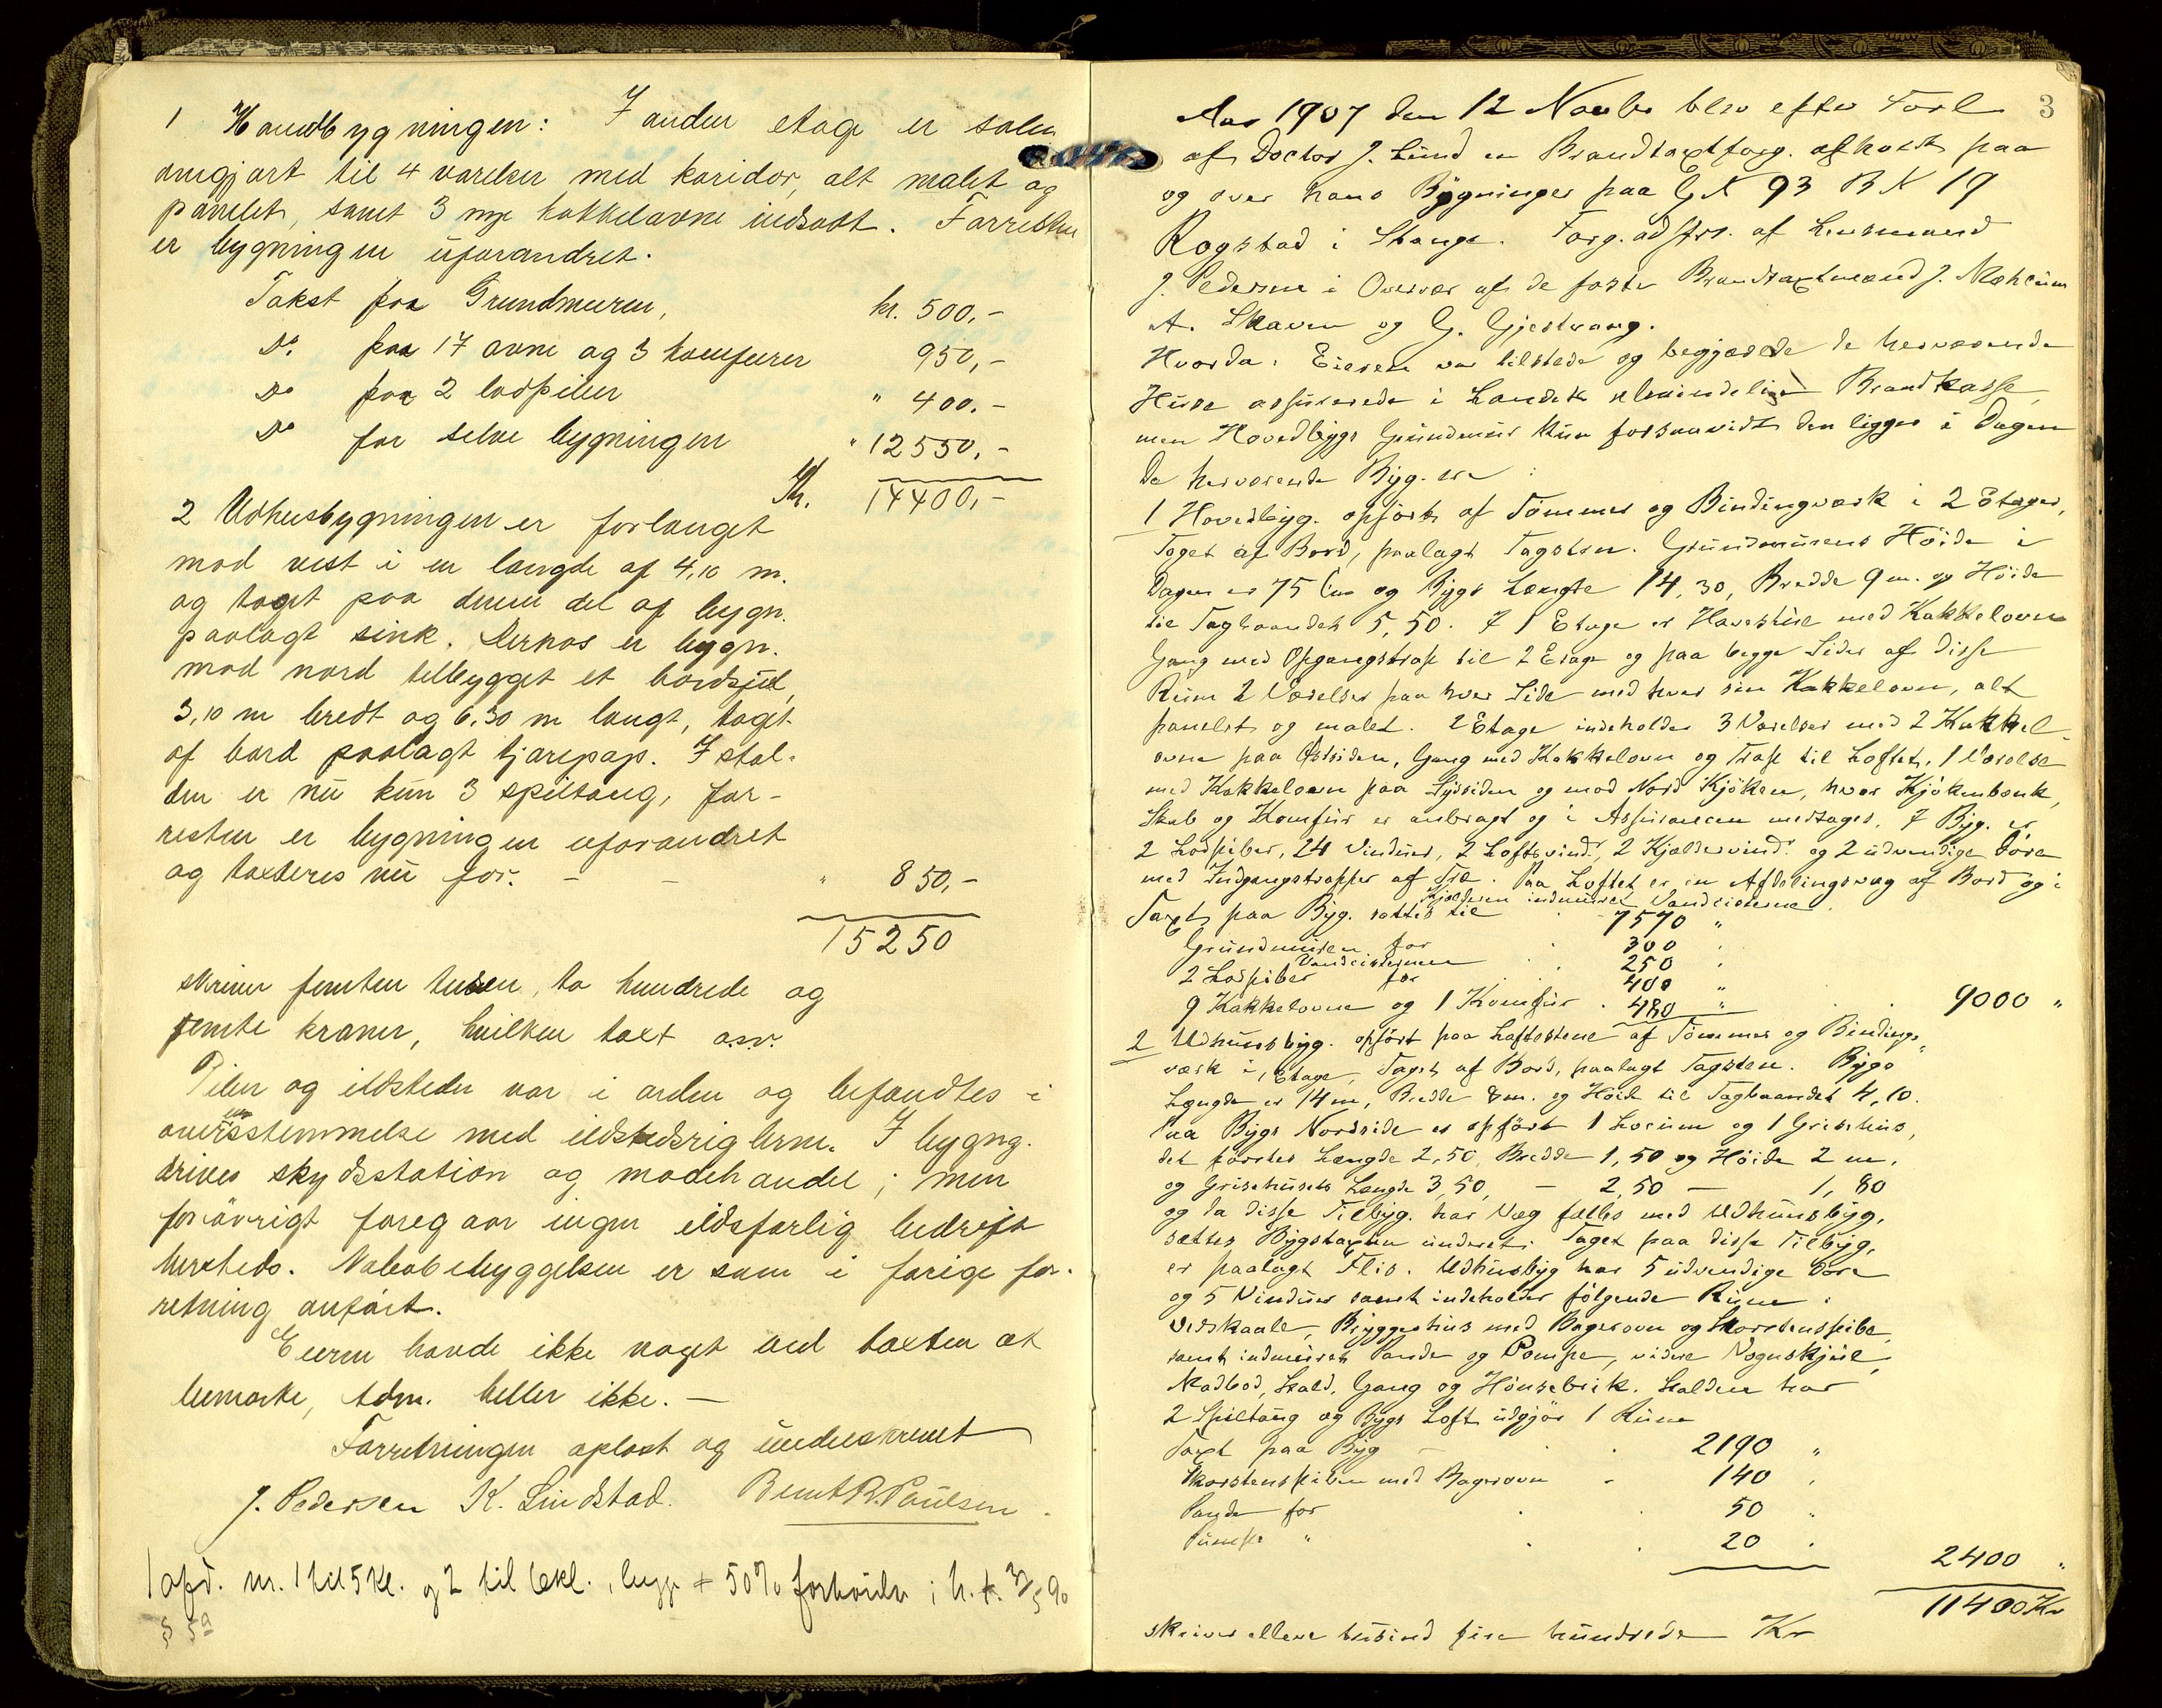 1 Hovedbygningen: I anden etage er salen
omgjort til 4 værelser med koridor, alt malet og
panelet, samt 3 nye kakkelovne indsadt. Forresten
er bygningen uforandret.
Takst paa Grundmuren, kr. 500,-
Do. paa 17 ovne og 3 komfurer 950,-
Do paa 2 lodpiber " 400.-
Do for selve bygningen " 12550,-
Kr. 14400,-
2 Udhusbygningen er forlænget
mod vest i en længde af 4,10 m.
og taget paa denne del af bygn.
paalagt sink. Dernæs er bygn.
mod nord tilbygget et bordskjul,
3,10 m bredt og 6,30 m langt, taget
af bord paalagt tjærepap. I stal-
den er nu kun 3 spiltaug, for-
resten er bygningen uforandret
og taxteres nu for. - - " 850,-
15250
skriver femten tusen, to hundrede og
femti kroner, hvilken taxt o.s.v.
Piber og ildsteder var i orden og befandtes i
overensstemmelse med ildstedsreglerne. I bygng.
drives skydsstation og modehandel; men
forøvrigt foregaar ingen ildsfarlig bedrift
hersteds. Nabobebyggelsen er som i forige for-
retning anført.
Eieren havde ikke noget ved taxten at
bemærke, Adm. heller ikke. -
Forretningen oplæst og underskrevet
J. Pedersen K. Lindstad. Bernt R. Paulsen.
1 opd. nr. 1 til 5 kl. og 2 til 6 kl., begge + 50% forhøielse
§ 5a
3
Aar 1907 den 12 Novbr blev efter Forl
af Doctor J. Lund en Brandtaxtforg. afholdt paa
og over hans Bygninger paa G N 93 B N 19
Rogstad i Stange. Forg. adfrs. af Lensmand
J. Pedersen i Overvær af de faste Brandtaxtmænd J. Mæhlum
A. Skaven og G. Gjestvang.
Hvorda: Eieren var tilstede og begjærede de herværende
Huse assurerede i Landets almindelige Brandkasse,
men Hovedbyggs Grundmur kun forsaavidt den ligger i Dagen
De herværende Byg. ere:
1 Hovedbyg. opført af Tømmer og Bindingværk i 2 Etager,
Taget af Bord, paalagt Tagsten. Grundmurens Høide i
Dagen er 75 Cm og Bygs Længde 14,30, Bredde 9 m. og Høide
til Tagbaandet 5,50. I 1 Etage er Havestue med Kakkelovn
Gang med Opgangstrap til 2 Etage og paa begge Sider af disse
Rum 2 Værelser paa hver Side med hver sin Kakkelovn, alt
panelet og malet. 2 Etage indeholder 3 Værelser med 2 Kakkel-
ovne paa Østsiden, Gang med Kakkelovn og Trap til Loftet, 1 Værelse
med Kakkelovn paa Sydsiden og mod Nord Kjøken, hvor Kjøkenbænk,
Skab og Komfur er anbragt og i Assurancen medtages. I Byg. er
2 Lodpiber, 24 Vinduer, 2 Loftsvind., 2 Kjældervind. og 2 udvendige Døre
med Indgangstrapper af Træ. Paa Loftet er en Afdelingsvæg af Bord og i
Kjælderen indmuret Vandcisterne.
Taxt paa Byg. sattes til 7570 "
Grundmuren for 300 "
Vandcisternen 250 "
2 Lodpiber for 400 "
9 Kakkelovne og 1 Komfur 480 " 9000 "
2 Udhusbyg. opført paa Loftestene af Tømmer og Bindings-
værk i 1 Etage, Taget af Bord, paalagt Tagsten. Bygs
Længde er 14 m, Bredde 8 m. og Høide til Tagbaandet 4,10.
Paa Bygs Nordside er opført 1 Locum og 1 Grisehus,
det førstes Længde 2,50, Bredde 1,50 og Høide 2 m,
og Grisehusets Længde 3,50, - 2,50 - 1,80
og da disse Tilbyg. har Væg fælles med Udhusbyg.
sættes Bygstaxten underet. Taget paa disse Tilbyg.
er paalagt Flis. Udhusbyg har 5 udvendige Døre
og 5 Vinduer samt indeholder følgende Rum:
Vedskaale, Bryggerhus med Bagerovn og Skorstenspibe,
samt indmuret Pande og Pompe, videre Vognskjul,
Madbod, Stald, Gang og Hønsebrik. Stalden har
2 Spiltaug og Bygs Loft udgjør 1 Rum
Taxt paa Byg - 2190 "
Skorstenspiben med Bagerovn - 140 "
Pande for 50 "
Pumpe " 20 " 2400 "
11400 Kr
skriver elleve tusind fire hundrede Kr